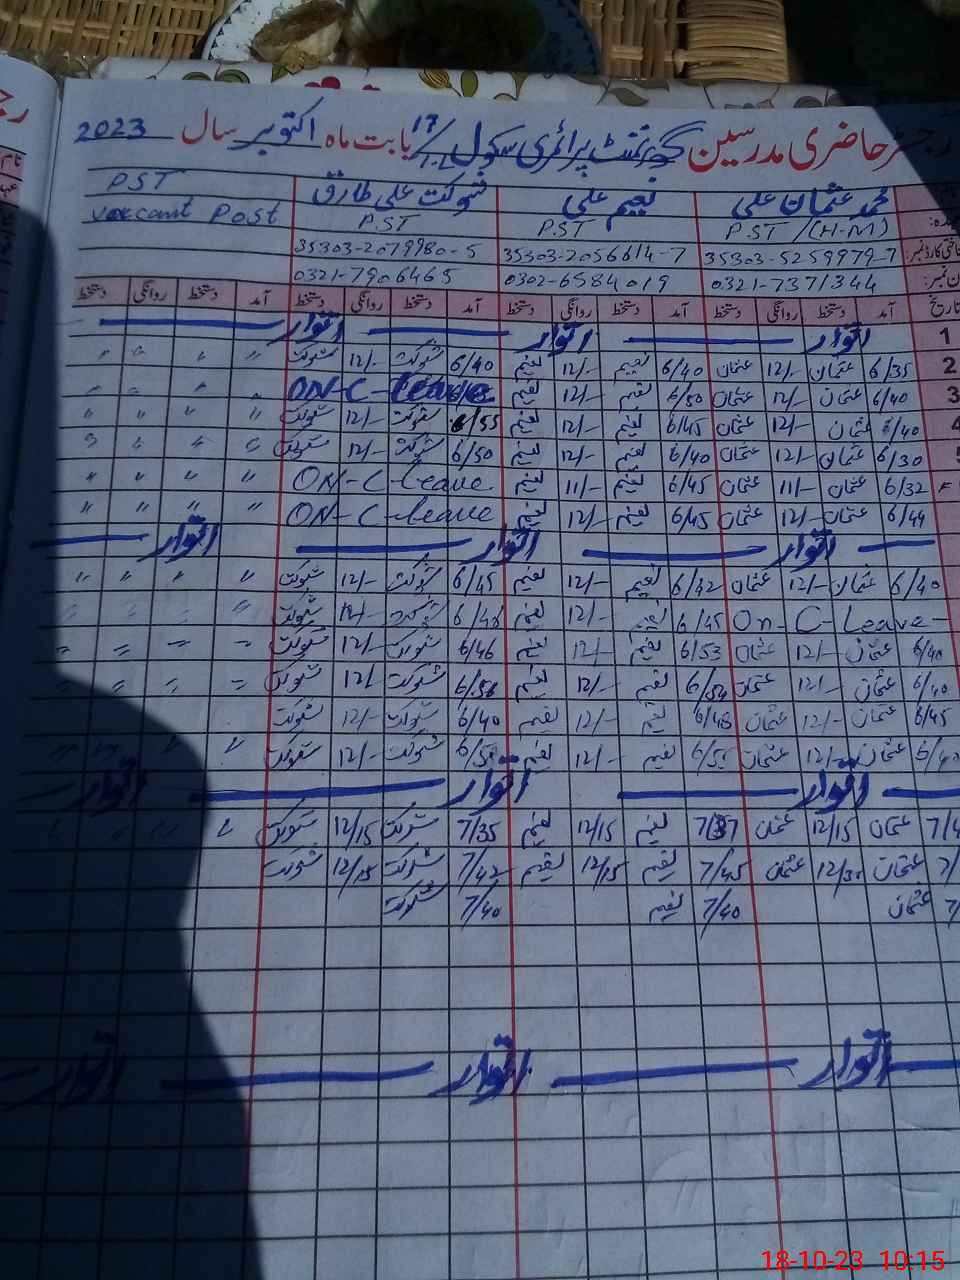 رجسٹر حاضری مدرسین گورنمنٹ پرائمری سکول 17/ بابت ماہ اکتوبر سال 2023
محمد عثمان علی نعیم علی شوکت علی طارق PST
PST/(H-M) PST PST Vaccant Post
35303-5259979-7 35303-2056614-7 35303-2079980-5
0321-7371344 0302-6584019 0321-7906465
تاریخ آمد دستخط روانگی دستخط آمد دستخط روانگی دستخط آمد دستخط روانگی دستخط آمد دستخط روانگی دستخط
1 اتوار اتوار اتوار
2 6/35 عثمان 12/- عثمان 6/40 نعیم 12/- نعیم 6/40 شوکت 12/- شوکت
3 6/40 عثمان 12/- عثمان 6/50 نعیم 12/- نعیم ON-C-Leave
4 6/40 عثمان 12/- عثمان 6/45 نعیم 12/- نعیم 6/55 شوکت 12/- شوکت
5 6/30 عثمان 12/- عثمان 6/40 نعیم 12/- نعیم 6/50 شوکت 12/- شوکت
6/32 عثمان 11/- عثمان 6/45 نعیم 11/- نعیم ON-C-Leave
6/44 عثمان 12/- عثمان 6/45 نعیم 12/- نعیم ON-C-Leave
اتوار اتوار اتوار
6/40 عثمان 12/- عثمان 6/42 نعیم 12/- نعیم 6/45 شوکت 12/- شوکت
On-C-Leave- 6/45 نعیم 12/- نعیم شوکت 12/- شوکت
6/40 عثمان 12/- عثمان 6/53 نعیم 12/- نعیم 6/46 شوکت 12/- شوکت
6/40 عثمان 12/- عثمان نعیم 12/- نعیم شوکت 12/- شوکت
6/45 عثمان 12/- عثمان 6/48 نعیم 12/- نعیم 6/40 شوکت 12/- شوکت
عثمان 12/- عثمان نعیم 12/- نعیم شوکت 12/- شوکت
اتوار اتوار اتوار
عثمان 12/15 عثمان نعیم 12/15 نعیم 7/35 شوکت 12/15 شوکت
عثمان عثمان 7/45 نعیم 12/15 نعیم 7/42 شوکت 12/15 شوکت
عثمان 7/40 نعیم 7/40 شوکت
اتوار اتوار اتوار
18-10-23 10:15